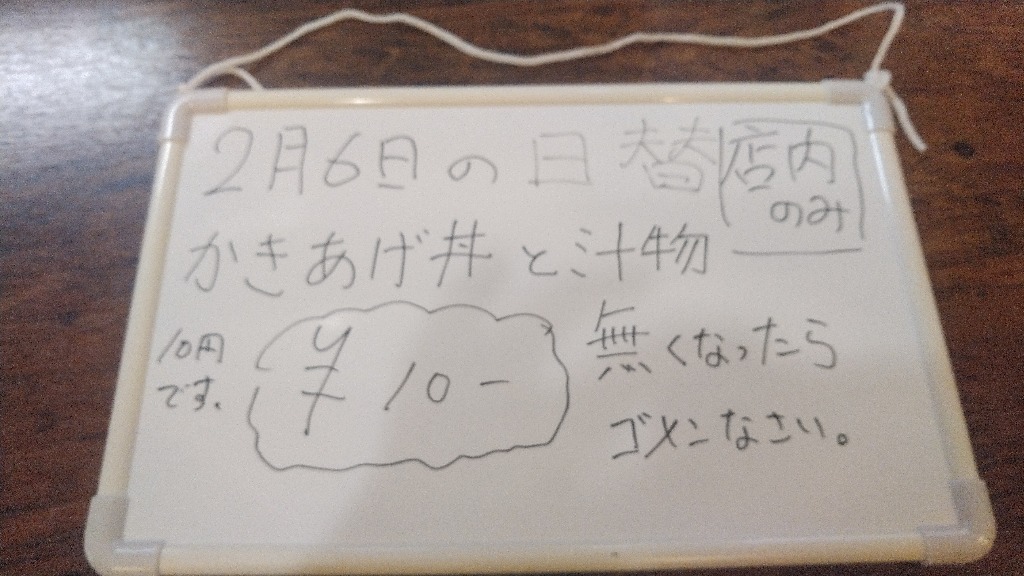 2月6日の日替
店内
のみ
かきあげ丼と汁物
10円
です。
¥10-
無くなったら
ゴメンなさい。